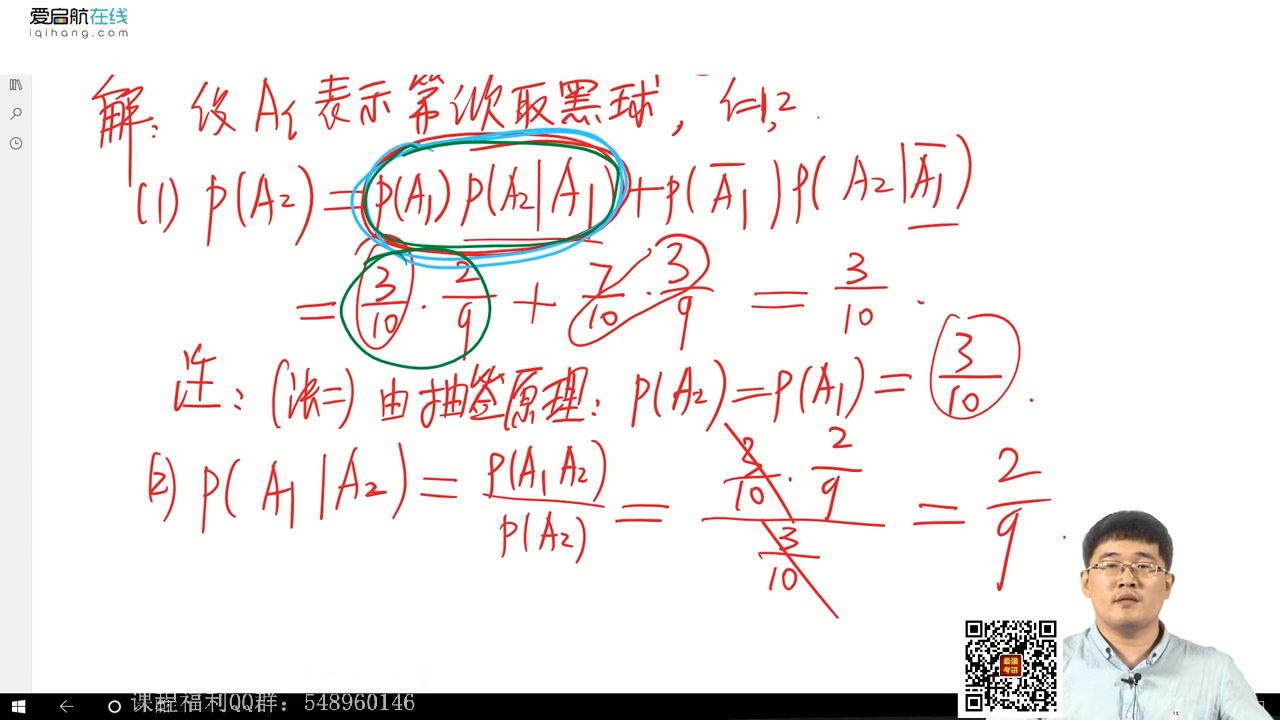 爱启航在线
iqihang.com
解：设 A_i 表示第i次取黑球，i=1,2.
(1) P(A₂)=P(A₁)P(A₂|A₁)+P(A̅₁)P(A₂|A̅₁)
= 3/10 · 2/9 + 7/10 · 3/9 = 3/10 .
注：(法二) 由抽签原理：P(A₂)=P(A₁)= 3/10 .
(2) P(A₁|A₂)= P(A₁A₂)/P(A₂) = (3/10 · 2/9)/(3/10) = 2/9 .
最强
考研
课程福利QQ群：548960146